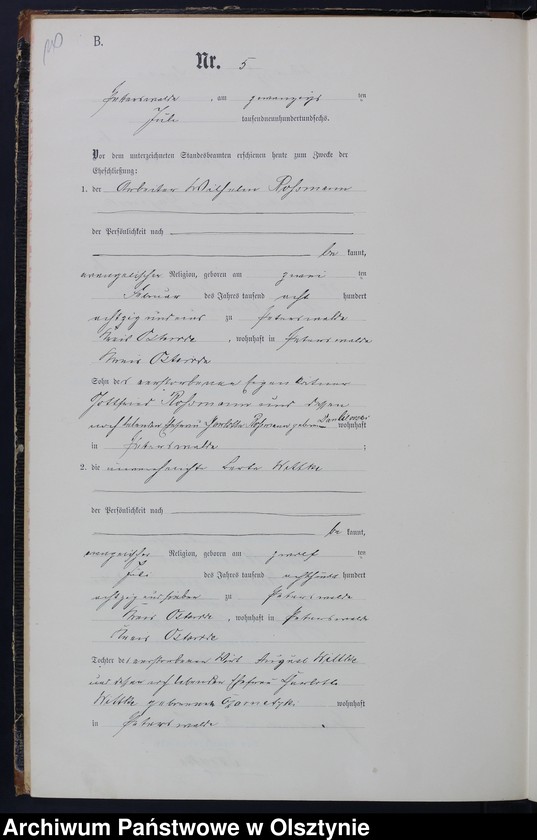 B.
Nr. 5
Peterswalde, am zwanzigsten
Juli tausendneunhundertundsechs.
Vor dem unterzeichneten Standesbeamten erschienen heute zum Zwecke der
Eheschließung:
1. der Arbeiter Wilhelm Roßmann
der Persönlichkeit nach
be kannt,
evangelischer Religion, geboren am zwei ten
Februar des Jahres tausend acht hundert
achtzig und eins zu Peterswalde
Kreis Osterode, wohnhaft in Peterswalde
Kreis Osterode
Sohn des verstorbenen
Gottfried Roßmann und dessen
noch lebenden Ehefrau Roßmann geborene wohnhaft
in Peterswalde ;
2. die unverehelichte Berta Wittke
der Persönlichkeit nach
be kannt,
evangelischer Religion, geboren am zwölf ten
Juli des Jahres tausend achthundert hundert
achtzig und sieben zu Peterswalde
Kreis Osterode, wohnhaft in Peterswalde
Kreis Osterode
Tochter des verstorbenen Wirt August Wittke
und dessen noch lebenden Ehefrau Charlotte
Wittke geborene wohnhaft
in Peterswalde.
Archiwum Państwowe w Olsztynie